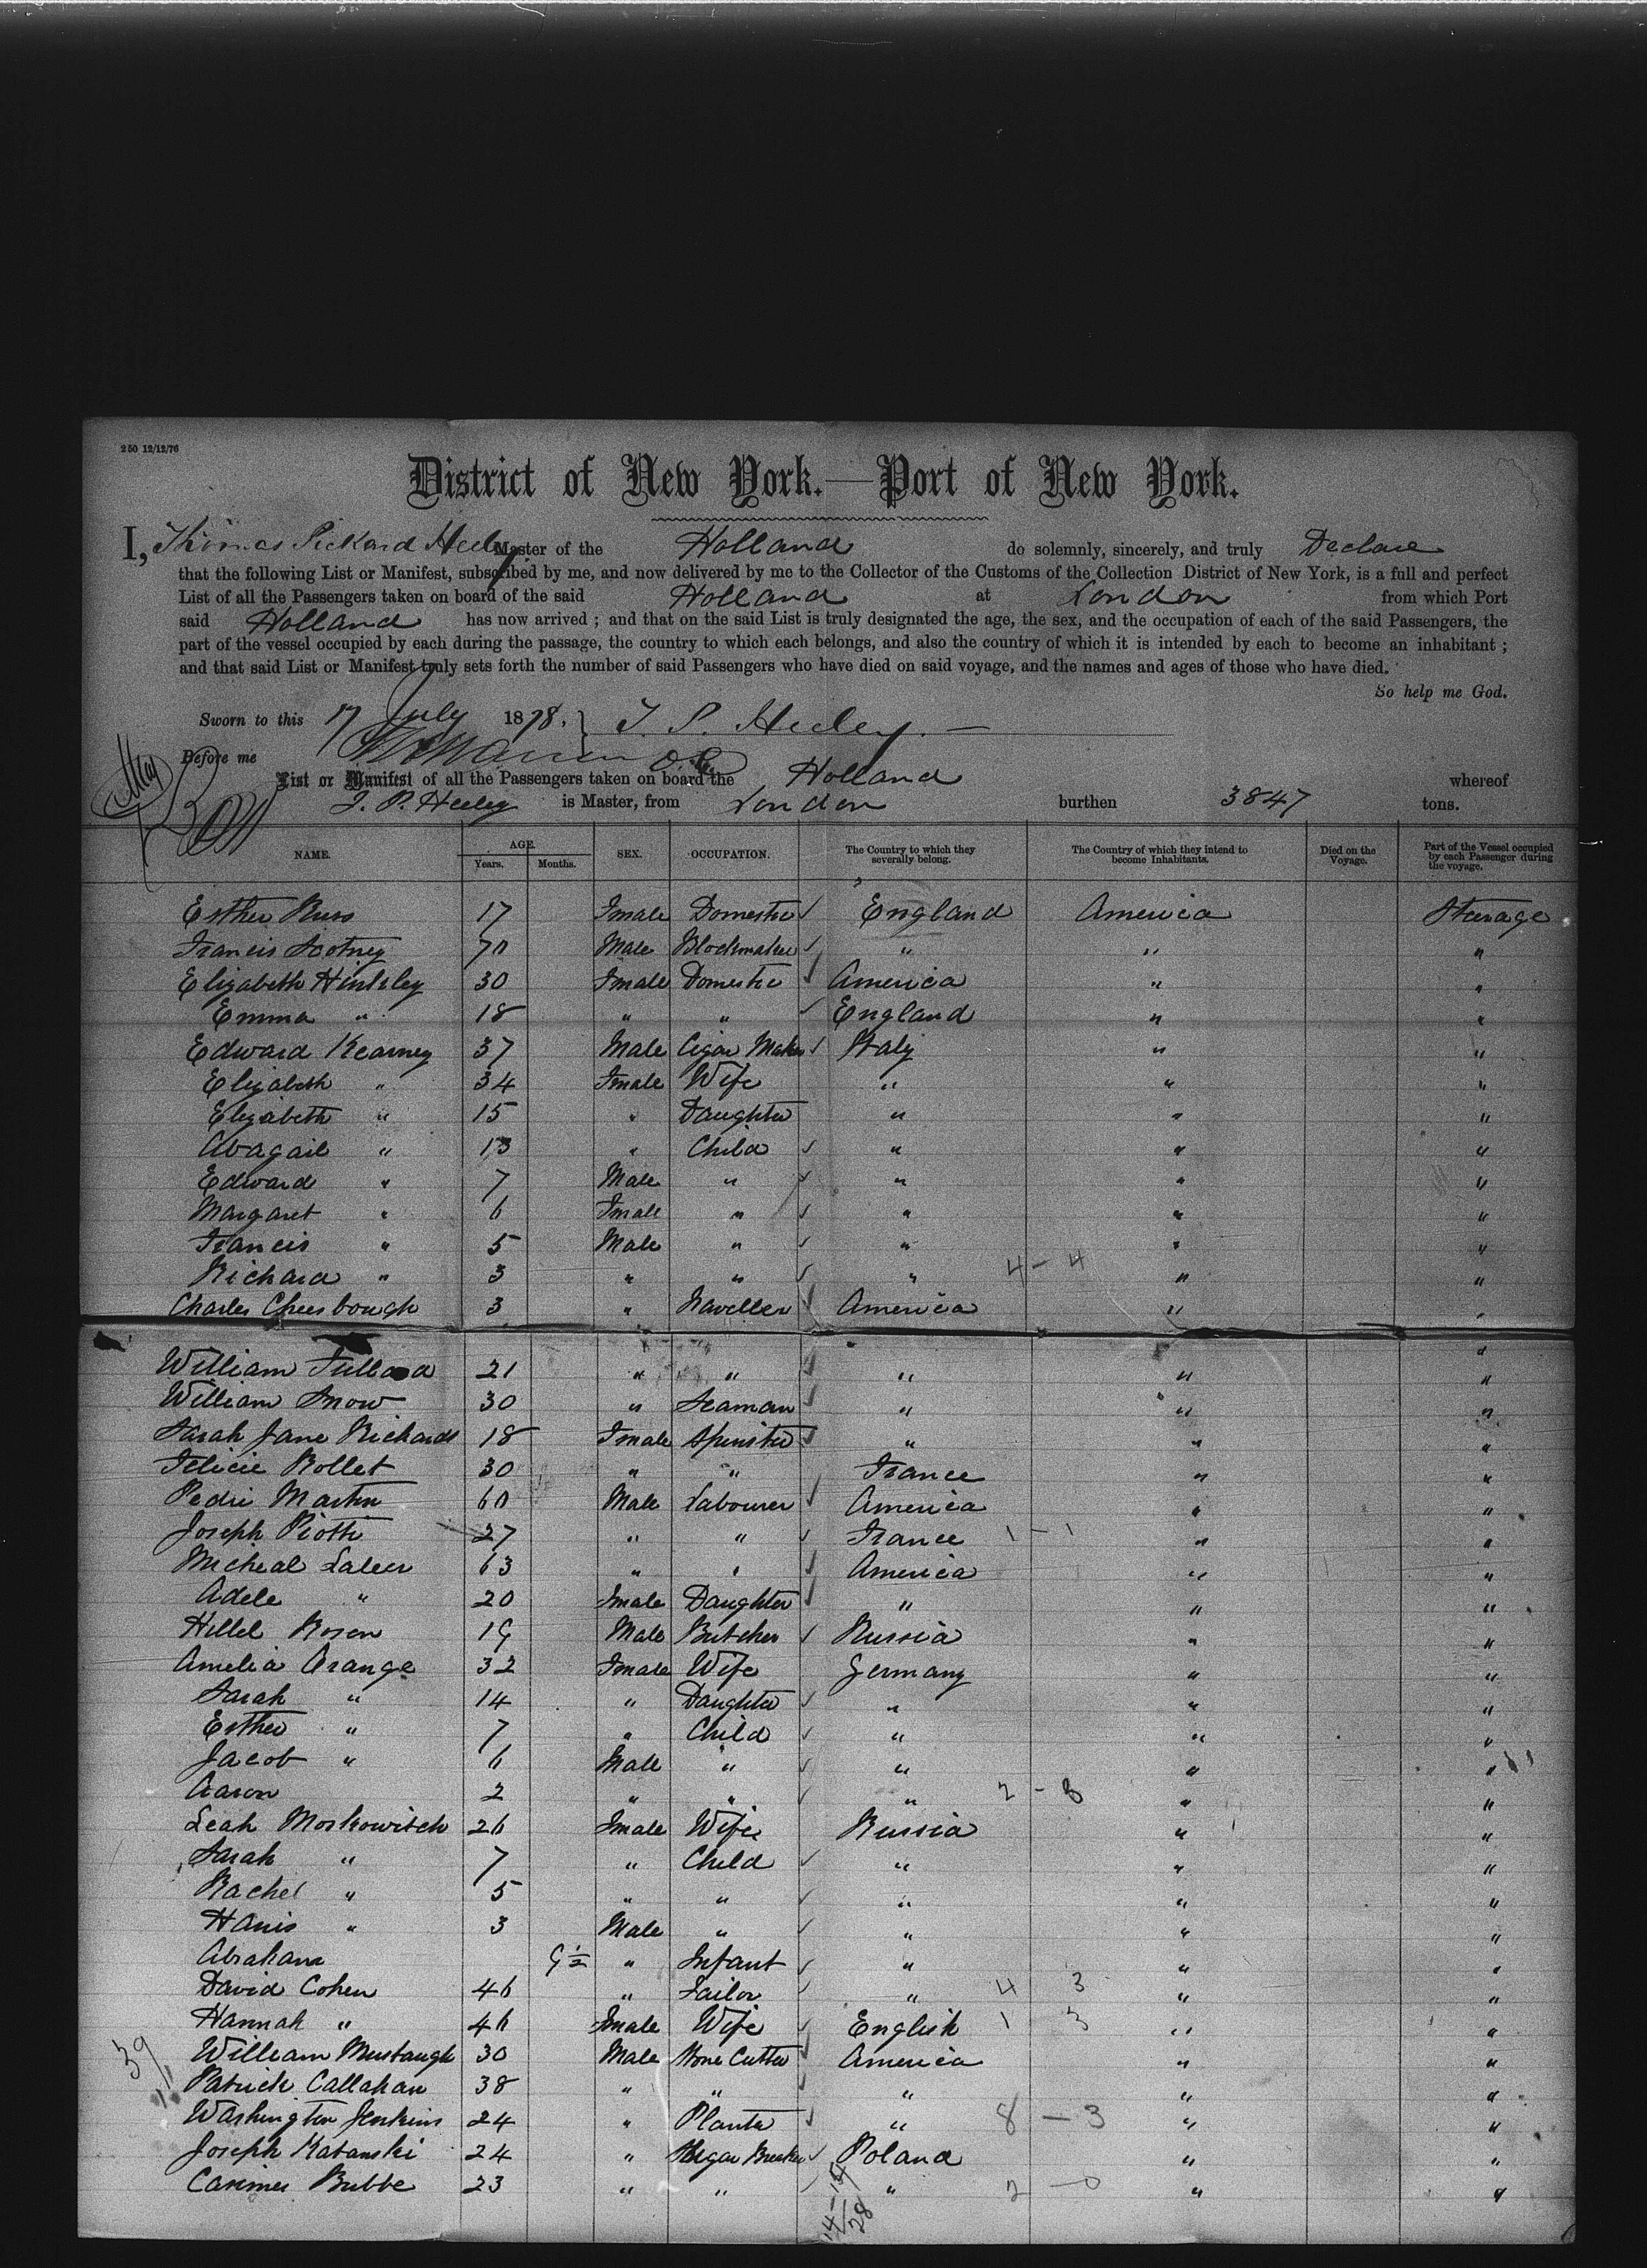 250 12/12/76
District of New York.—Port of New York.
I, Thomas Pickard Heeley Master of the Holland do solemnly, sincerely, and truly Declare
that the following List or Manifest, subscribed by me, and now delivered by me to the Collector of the Customs of the Collection District of New York, is a full and perfect
List of all the Passengers taken on board of the said Holland at London from which Port
said Holland has now arrived ; and that on the said List is truly designated the age, the sex, and the occupation of each of the said Passengers, the
part of the vessel occupied by each during the passage, the country to which each belongs, and also the country of which it is intended by each to become an inhabitant ;
and that said List or Manifest truly sets forth the number of said Passengers who have died on said voyage, and the names and ages of those who have died.
So help me God.
Sworn to this 17 July 1878. } T. P. Heeley.
Before me
List or Manifest of all the Passengers taken on board the Holland whereof
T. P. Heeley is Master, from London burthen 3847 tons.
NAME. AGE. Years. Months. SEX. OCCUPATION. The Country to which they severally belong. The Country of which they intend to become Inhabitants. Died on the Voyage. Part of the Vessel occupied by each Passenger during the voyage.
Esther Russ 17 Female Domestic ✓ England America Steerage
Francis Sotney 70 Male Blockmaker ✓ " " "
Elizabeth Hinksley 30 Female Domestic ✓ America " "
Emma " 18 " " ✓ England " "
Edward Kearney 37 Male Cigar Maker ✓ Italy " "
Elizabeth " 34 Female Wife " " "
Elizabeth " 15 " Daughter " " "
Abagail " 13 " Child ✓ " " "
Edward " 7 Male " ✓ " " "
Margaret " 6 Female " ✓ " " "
Francis " 5 Male " ✓ " " "
Richard " 3 " " ✓ " 4 - 4 " "
Charles Cheesbough 3 " Traveller ✓ America " "
William 21 " " ✓ " " "
William Snow 30 " Seaman ✓ " " "
Sarah Jane Richards 18 Female Spinster ✓ " " "
Felicie Rollet 30 " " France " "
Pedri Martin 60 Male Labourer ✓ America " "
Joseph Piotti 27 " " ✓ France 1 - 1 " "
Micheal 63 " " ✓ America " "
Adele " 20 Female Daughter ✓ " " "
Hillel Rosen 19 Male Butcher ✓ Russia " "
Amelia Orange 32 Female Wife Germany " "
Sarah " 14 " Daughter ✓ " " "
Esther " 7 " Child ✓ " " "
Jacob " 6 Male " ✓ " " "
Aaron 2 " " ✓ " 2 - 8 " "
Leah Moskowitch 26 Female Wife Russia " "
Sarah " 7 " Child ✓ " " "
Rachel " 5 " " ✓ " " "
Hanis " 3 Male " ✓ " " "
Abraham 9½ " Infant ✓ " " "
David Cohen 46 " Tailor ✓ " 4 3 " "
Hannah " 46 Female Wife ✓ English 1 3 " "
William Mustaugh 30 Male Stone Cutter ✓ America " "
Patrick Callahan 38 " " ✓ " " "
Washington Jenkins 24 " Planter ✓ " 8 - 3 " "
Joseph Katanski 24 " ✓ Poland " "
Casimer Bubbe 23 " " ✓ " 2 - 0 " "
39
14-14
28